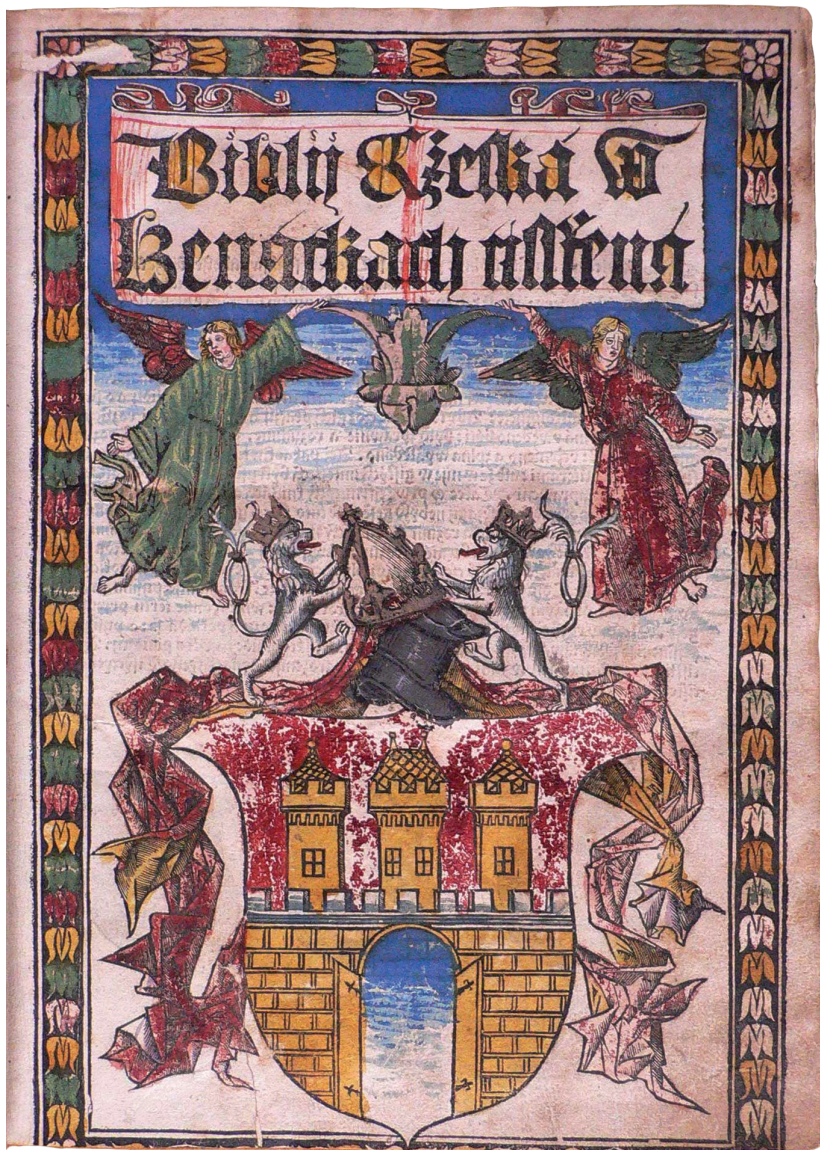 Biblij Cžeská W
Benatkach tisstěna